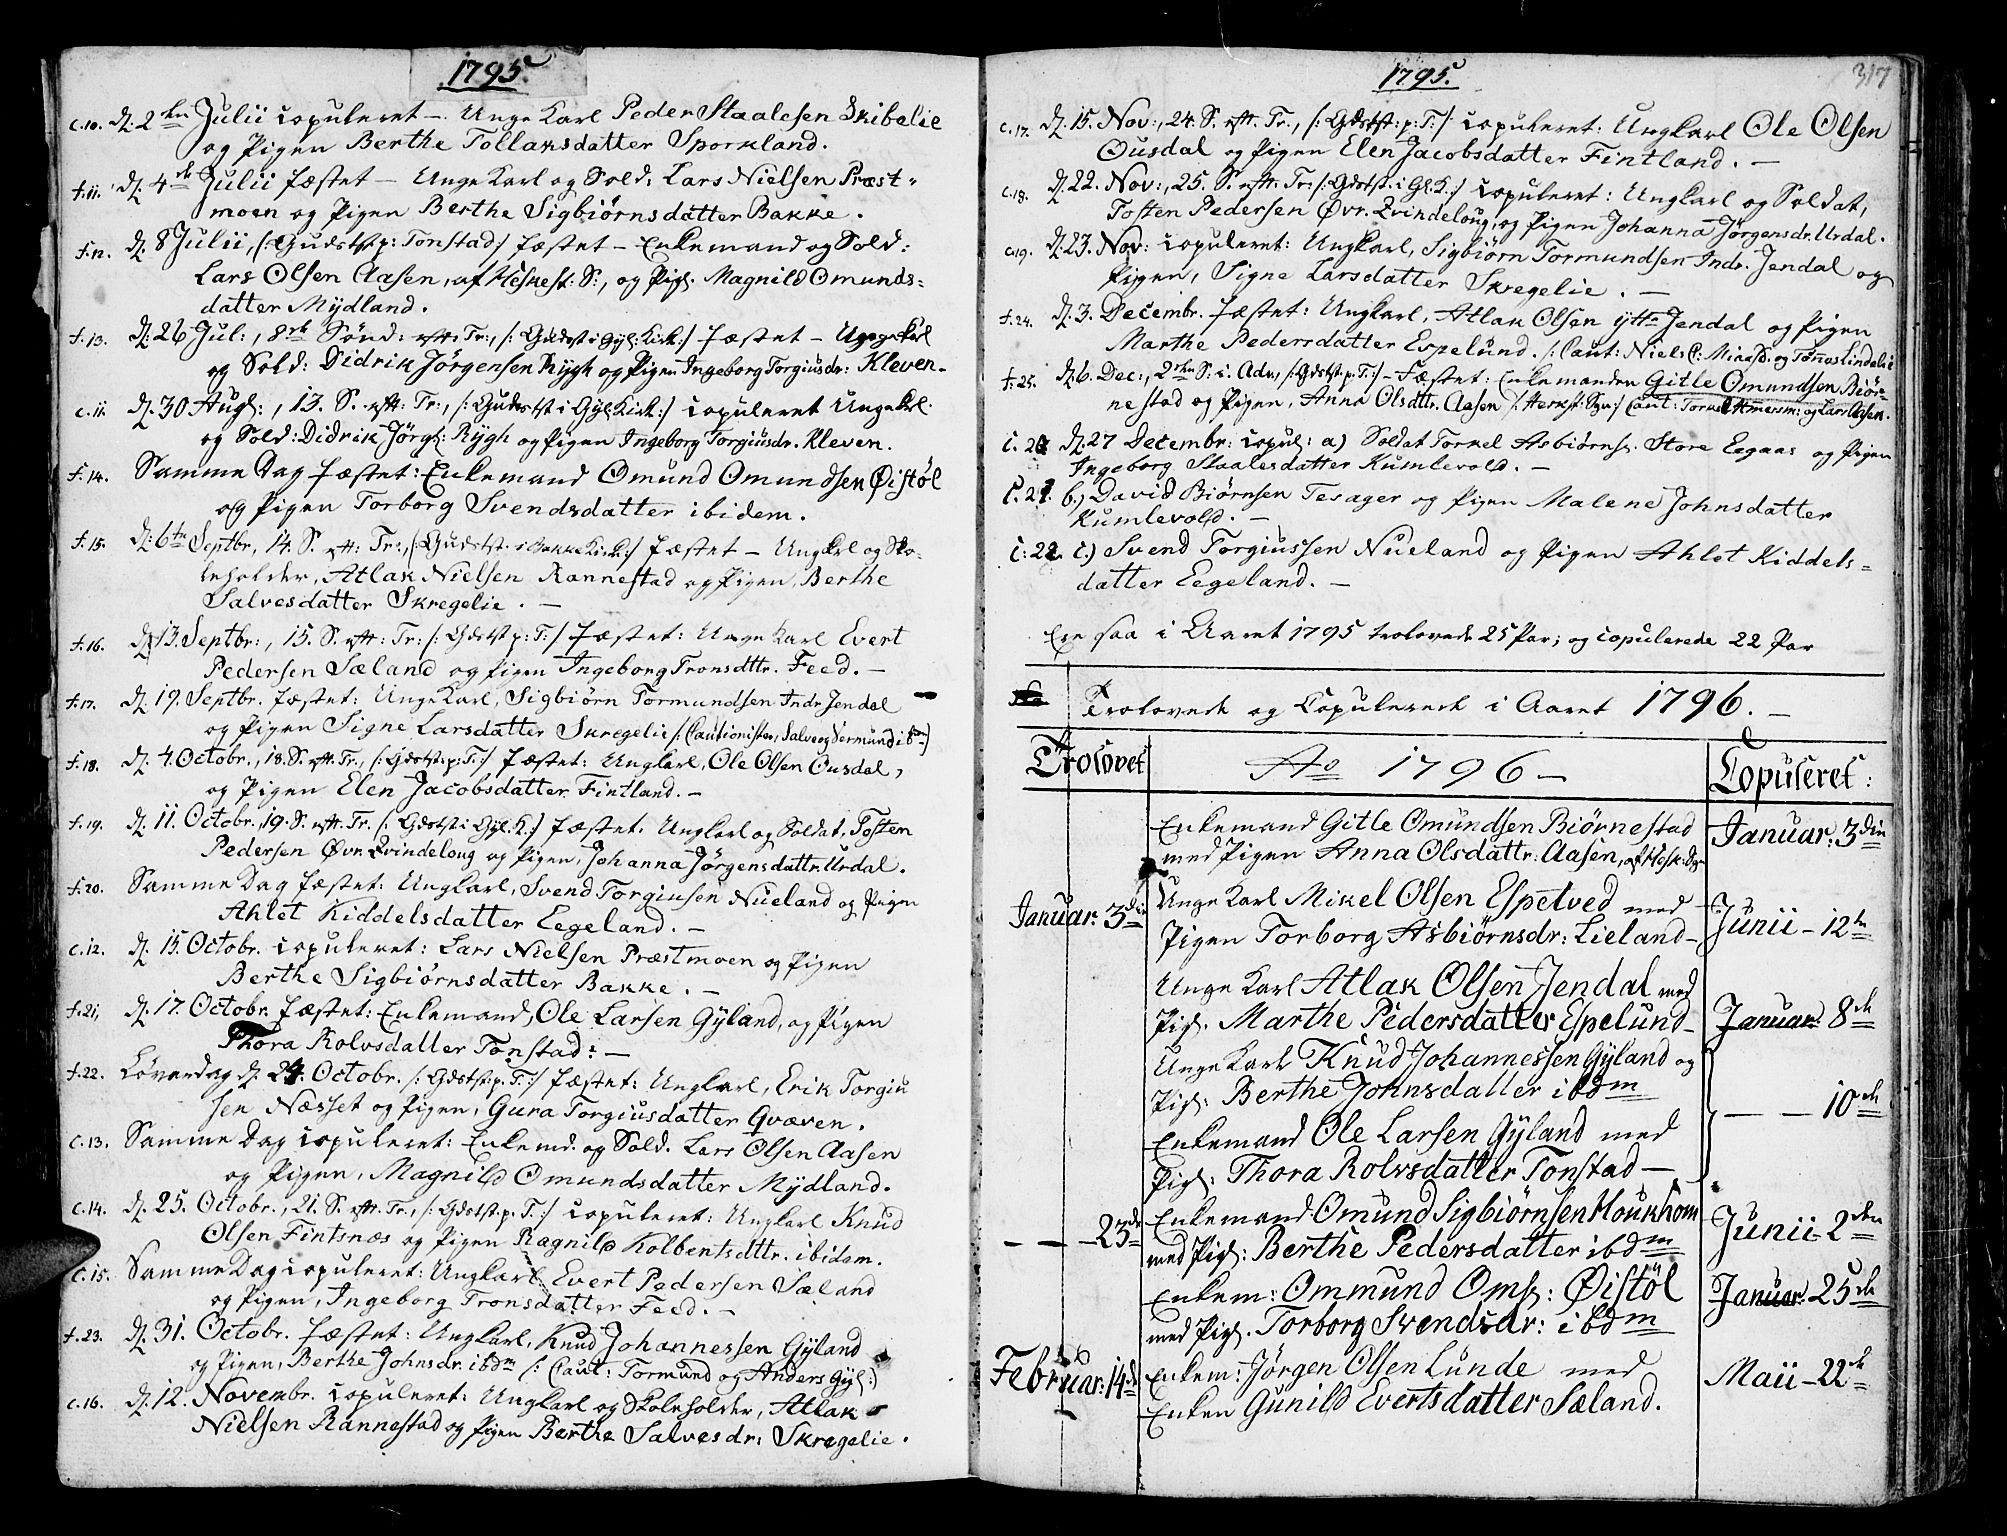 1795.
c.10. d. 2den Julii copuleret – Unge Karl Peder Staalesen Skibelie
og Pigen Berthe Tollaksdatter Sporkland.
f.11. d. 4de Julii fæstet – Unge Karl og Sold: Lars Nielsen Præst-
moen og Pigen Berthe Sigbiörnsdatter Bakke.
f.12. d. 8 Julii, /: Gudstst: p: Tonstad:/ fæstet – Enkemand og Sold:
Lars Olsen Aasen, af Heskest: S:, og Pig. Magnild Omunds-
datter Mÿdland.
f.13. d: 26 Jul:, 8de Sönd: eft: Tr:, /: Gudstst i Gÿl: Kirk:/ fæstet – Ungekarl
og Sold: Didrik Jörgensen Rÿgh og Pigen Ingeborg Torgiusdr: Kleven.
c.11. d. 30 Augs:, 13. S. eft: Tr:, /: Gudstst i Gÿl: Kirk:/ copuleret Ungekrl.
og Sold: Didrik Jörgs: Rÿgh og Pigen Ingeborg Torgiusdr. Kleven.
f.14. Samme Dag fæstet: Enkemand Omund Omundsen Øistöl
og Pigen Torborg Svendsdatter ibidem.
f.15. d: 6te Septbr, 14. S. eft: Tr:, /: Gudstst. i Bakke Kirk:/ fæstet – Ungkrl og Sko-
leholder, Atlak Nielsen Rannestad og Pigen, Berthe
Salvesdatter Skregelie. –
f.16. d. 13. Septbr:, 15. S. eft: Tr: /: Gdstst p: T:/ fæstet: Unge Karl Evert
Pedersen Sæland og Pigen Ingeborg Tronsdttr. Feed. –
f.17. d. 19. Septbr. fæstet: Unge Karl, Sigbiörn Tormundsen Indr Jendal
og Pigen Signe Larsdatter Skregelie /: Cautionister, Salve og Sermund ibdm:/
f.18. d. 4. Octobr., 18. S. eft. Tr., /: Gdstst: p: T:/ fæstet: Ungkarl, Ole Olsen Ousdal,
og Pigen Elen Jacobsdatter Fintland. –
f.19. d. 11. Octobr., 19. S. eft. Tr. /: Gdstst i Gÿl. K:/ fæstet. Ungkarl og Soldat, Tosten
Pedersen Øvr Qvindeloug og Pigen, Johanna Jörgensdattr. Urdal.
f.20. Samme Dag fæstet: Ungkarl, Svend Torgiusen Nueland og Pigen
Ahlet Kiddelsdatter Eegeland. –
c.12. d. 15. Octobr. copuleret: Lars Nielsen Præstmoen og Pigen
Berthe Sigbiörnsdatter Bakke. –
f.21, d. 17. Octobr. fæstet: Enkemand, Ole Larsen Gÿland, og Pigen
Thora Rolvsdatter Tonstad: –
f.22. Löverdag d. 24. Octobr. /: Gdstst: p. T.:/ fæstet: Ungkarl, Erik Torgiu
sen Næsset og Pigen, Gura Torgiusdatter Qvæven.
c.13. Samme Dag copuleret: Enkemd. og Sold. Lars Olsen Aasen
og Pigen, Magnild Omundsdatter Mÿdland.
c.14. d. 25. Octobr., 21. S. eft. Tr., /: Gdstst: p. T.:/ copuleret: Ungkarl Knud
Olsen Fintsnæs og Pigen Ragnild Kolbentsdttr. ibidem.
c.15. Samme Dag copuleret: Ungkarl Evert Pedersen Sæland
og Pigen, Ingeborg Tronsdatter Feed. –
f.23. d. 31. Octobr. fæstet: Ungkarl, Knud Johannessen Gÿland
og Pigen, Berthe Johnsdr. ibdm /: Caut: Tormund og Anders Gÿl:/
c.16. d. 12. Novembr. copuleret: Ungkarl og Skoleholder, Atlak
Nielsen Rannestad og Pigen Berthe Salvesdr: Skregelie.
1795.
317
c.17. d. 15. Nov:, 24. S. eft. Tr., /: Gdstst: p: T:/ copuleret: Ungkarl Ole Olsen
Ousdal og Pigen Elen Jacobsdatter Fintland. –
c.18. d. 22. Nov:, 25. S. eft: Tr: /: Gdstst. i Gl. K:/ copuleret: Ungkarl og Soldat,
Tosten Pedersen Øvr. Qvindeloug, og Pigen Johanna Jörgensdr. Urdal.
c.19. d. 23. Nov: copuleret: Ungkarl, Sigbiörn Tormundsen Indr. Jendal og
Pigen, Signe Larsdatter Skregelie. –
f.24. d. 3. Decembr. fæstet: Ungkarl, Atlak Olsen ytte Jendal og Pigen
Marthe Pedersdatter Espelund. /: Caut: Niels C: Miaas. og Tönnes Lindelie
f.25. d. 6. Dec:, 2den S: i. Adv, /: Gdstst. p. T.:/ – Fæstet: Enkemanden Gitle Omundsen Biör-
nestad og Pigen, Anna Olsdttr. Aasen /: Heskst: Sgn:/ Caut: Tormd Amersm: og Lars Aasen.
c.20 d. 27 Decembr: copul: a) Soldat Torkel Asbiörns. Store Eegaas og Pigen
Ingeborg Staalesdatter Kumlevold. –
c.21 b.) David Biörnsen Tesager og Pigen Malene Johnsdatter
Kumlevold. –
c:22. c.) Svend Torgiussen Nueland og Pigen Ahlet Kiddels-
datter Eegeland. –
Ere saa i Aaret 1795 trolovede 25 Par; og copulerede 22 Par
Trolovede og Copulerede i Aaret 1796. –
Trolovet Ao 1796 – Copuleret:
Enkemand Gitle Omundsen Biörnestad Januar: 3die
med Pigen Anna Olsdattr: Aasen, af Hesk: Sgn
Januar: 3die Unge Karl Mikel Olsen Espetved med Junii – 12te
Pigen Torborg Asbiörnsdr: Lieland –
Unge Karl Atlak Olsen Jendal med
Pig. Marthe Pedersdatter Espelund – Januar: 8de
Unge Karl Knud Johannessen Gÿland og
Pig: Berthe Johnsdatter ibdm – – 10de
Enkemand Ole Larsen Gÿland med
Pig: Thora Rolvsdatter Tonstad –
– – 23de Enkemand Omund Sigbiörnsen Houkhom Junii – 2den
med Pig: Berthe Pedersdatter ibdm
Enkem: Ommund Oms: Øistöl Januar: 25de
med Pig. Torborg Svendsdr: ibdm
Februar: 14de Enkem: Jörgen Olsen Lunde med Maii – 22de
Enken Gunild Evertsdatter Sæland.